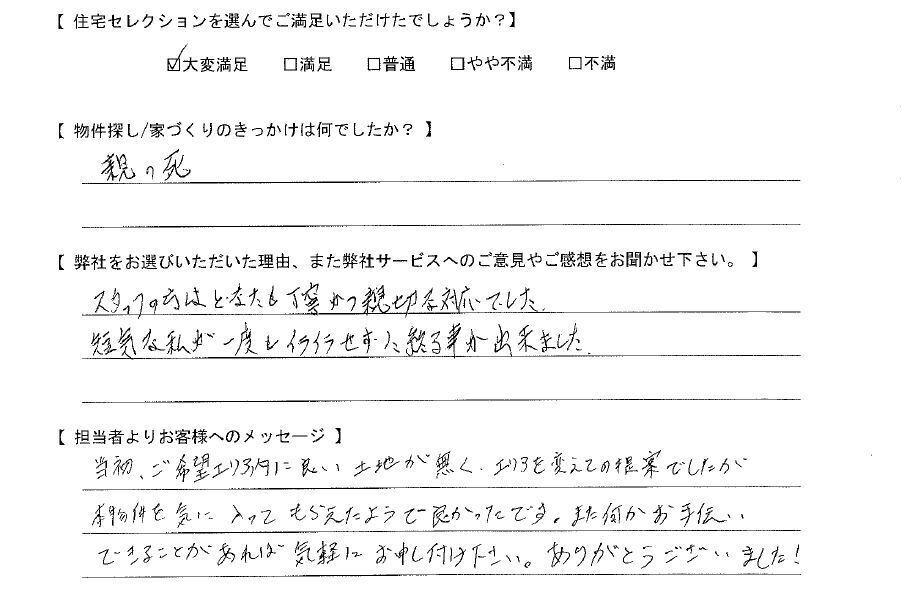 【 住宅セレクションを選んでご満足いただけたでしょうか？】
☑大変満足 □満足 □普通 □やや不満 □不満
【 物件探し/家づくりのきっかけは何でしたか？ 】
親の死
【 弊社をお選びいただいた理由、また弊社サービスへのご意見やご感想をお聞かせ下さい。 】
スタッフの方はどなたも丁寧かつ親切な対応でした。
短気な私が一度もイライラせずに終る事が出来ました。
【 担当者よりお客様へのメッセージ 】
当初、ご希望エリア内に良い土地が無く、エリアを変えての提案でしたが
本物件を気に入ってもらえたようで良かったです。また何かお手伝い
できることがあれば気軽にお申し付け下さい。ありがとうございました！